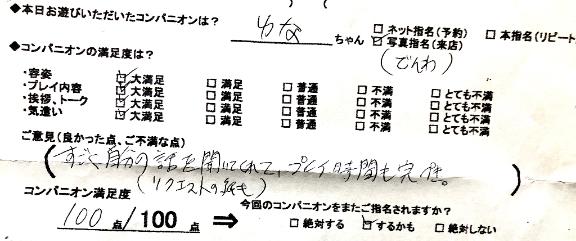 ◆本日お遊びいただいたコンパニオンは? ゆな ちゃん □ネット指名(予約) □本指名(リピート
☑写真指名(来店)
(でんわ)
◆コンパニオンの満足度は?
・容姿 ☑大満足 □満足 □普通 □不満 □とても不満
・プレイ内容 ☑大満足 □満足 □普通 □不満 □とても不満
・挨拶、トーク ☑大満足 □満足 □普通 □不満 □とても不満
・気遣い ☑大満足 □満足 □普通 □不満 □とても不満
ご意見(良かった点、ご不満な点)
(すごく自分の話を聞いてくれて、プレイ時間も完ぺき。)
(リクエストの も)
コンパニオン満足度 今回のコンパニオンをまたご指名されますか?
100点/100点 ⇒ □絶対する ☑するかも □絶対しない